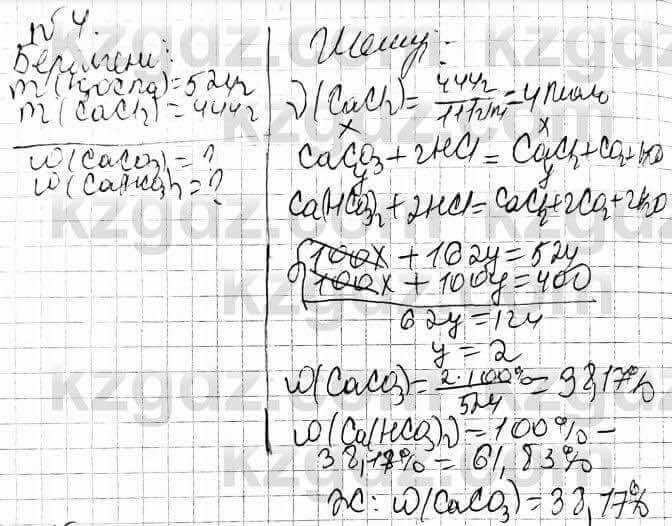 № 4.
Берілгені:
m(қоспа)=524г
m(CaCl₂)=444г
w(CaCO₃)=?
w(Ca(HCO₃)₂=?
Шешуі:
ν(CaCl₂)=444г/111г/м=4моль
x x
CaCO₃+2HCl=CaCl₂+CO₂+H₂O
y y
Ca(HCO₃)₂+2HCl=CaCl₂+2CO₂+2H₂O
100x+162y=524
100x+100y=400
62y=124
y=2
w(CaCO₃)=2·100%/524=38,17%
w(Ca(HCO₃)₂)=100%-
38,17%=61,83%
Ж: w(CaCO₃)=38,17%
kzgdz.com